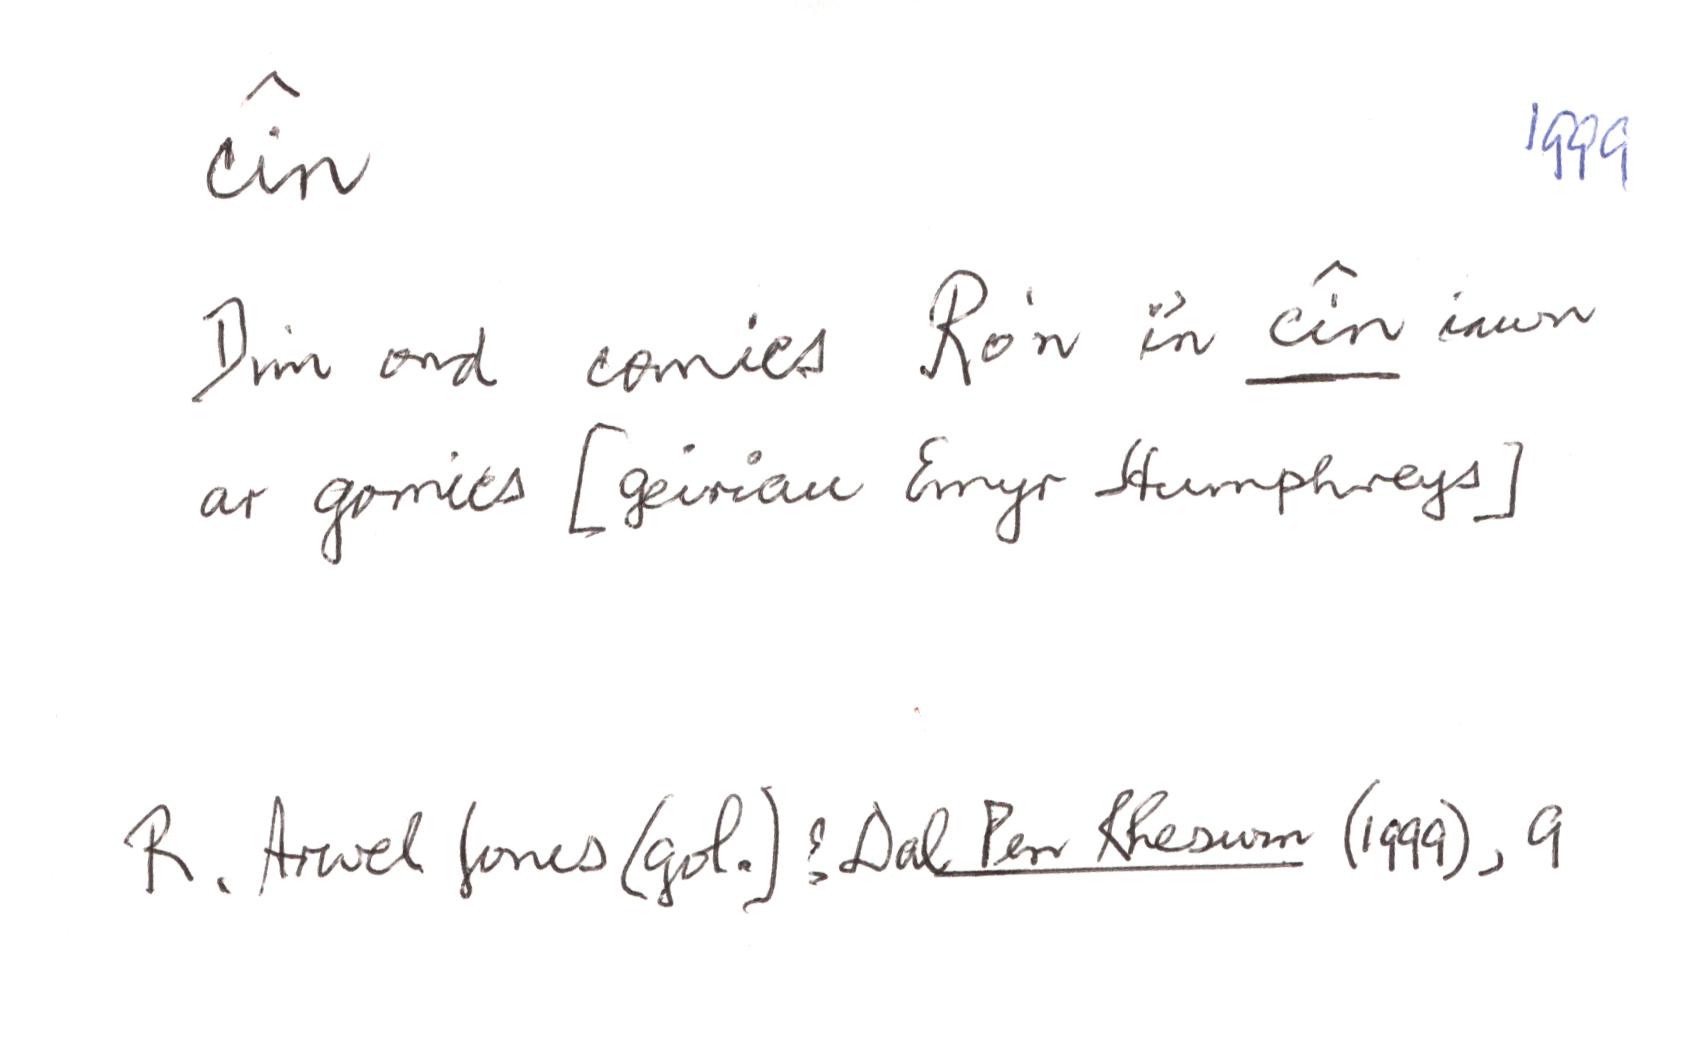 cîn
1999
Dim ond comics Ro'n i'n cîn iawn
ar gomics [geiriau Emyr Humphreys]
R. Arwel Jones (gol.): Dal Pen Rheswm (1999), 9